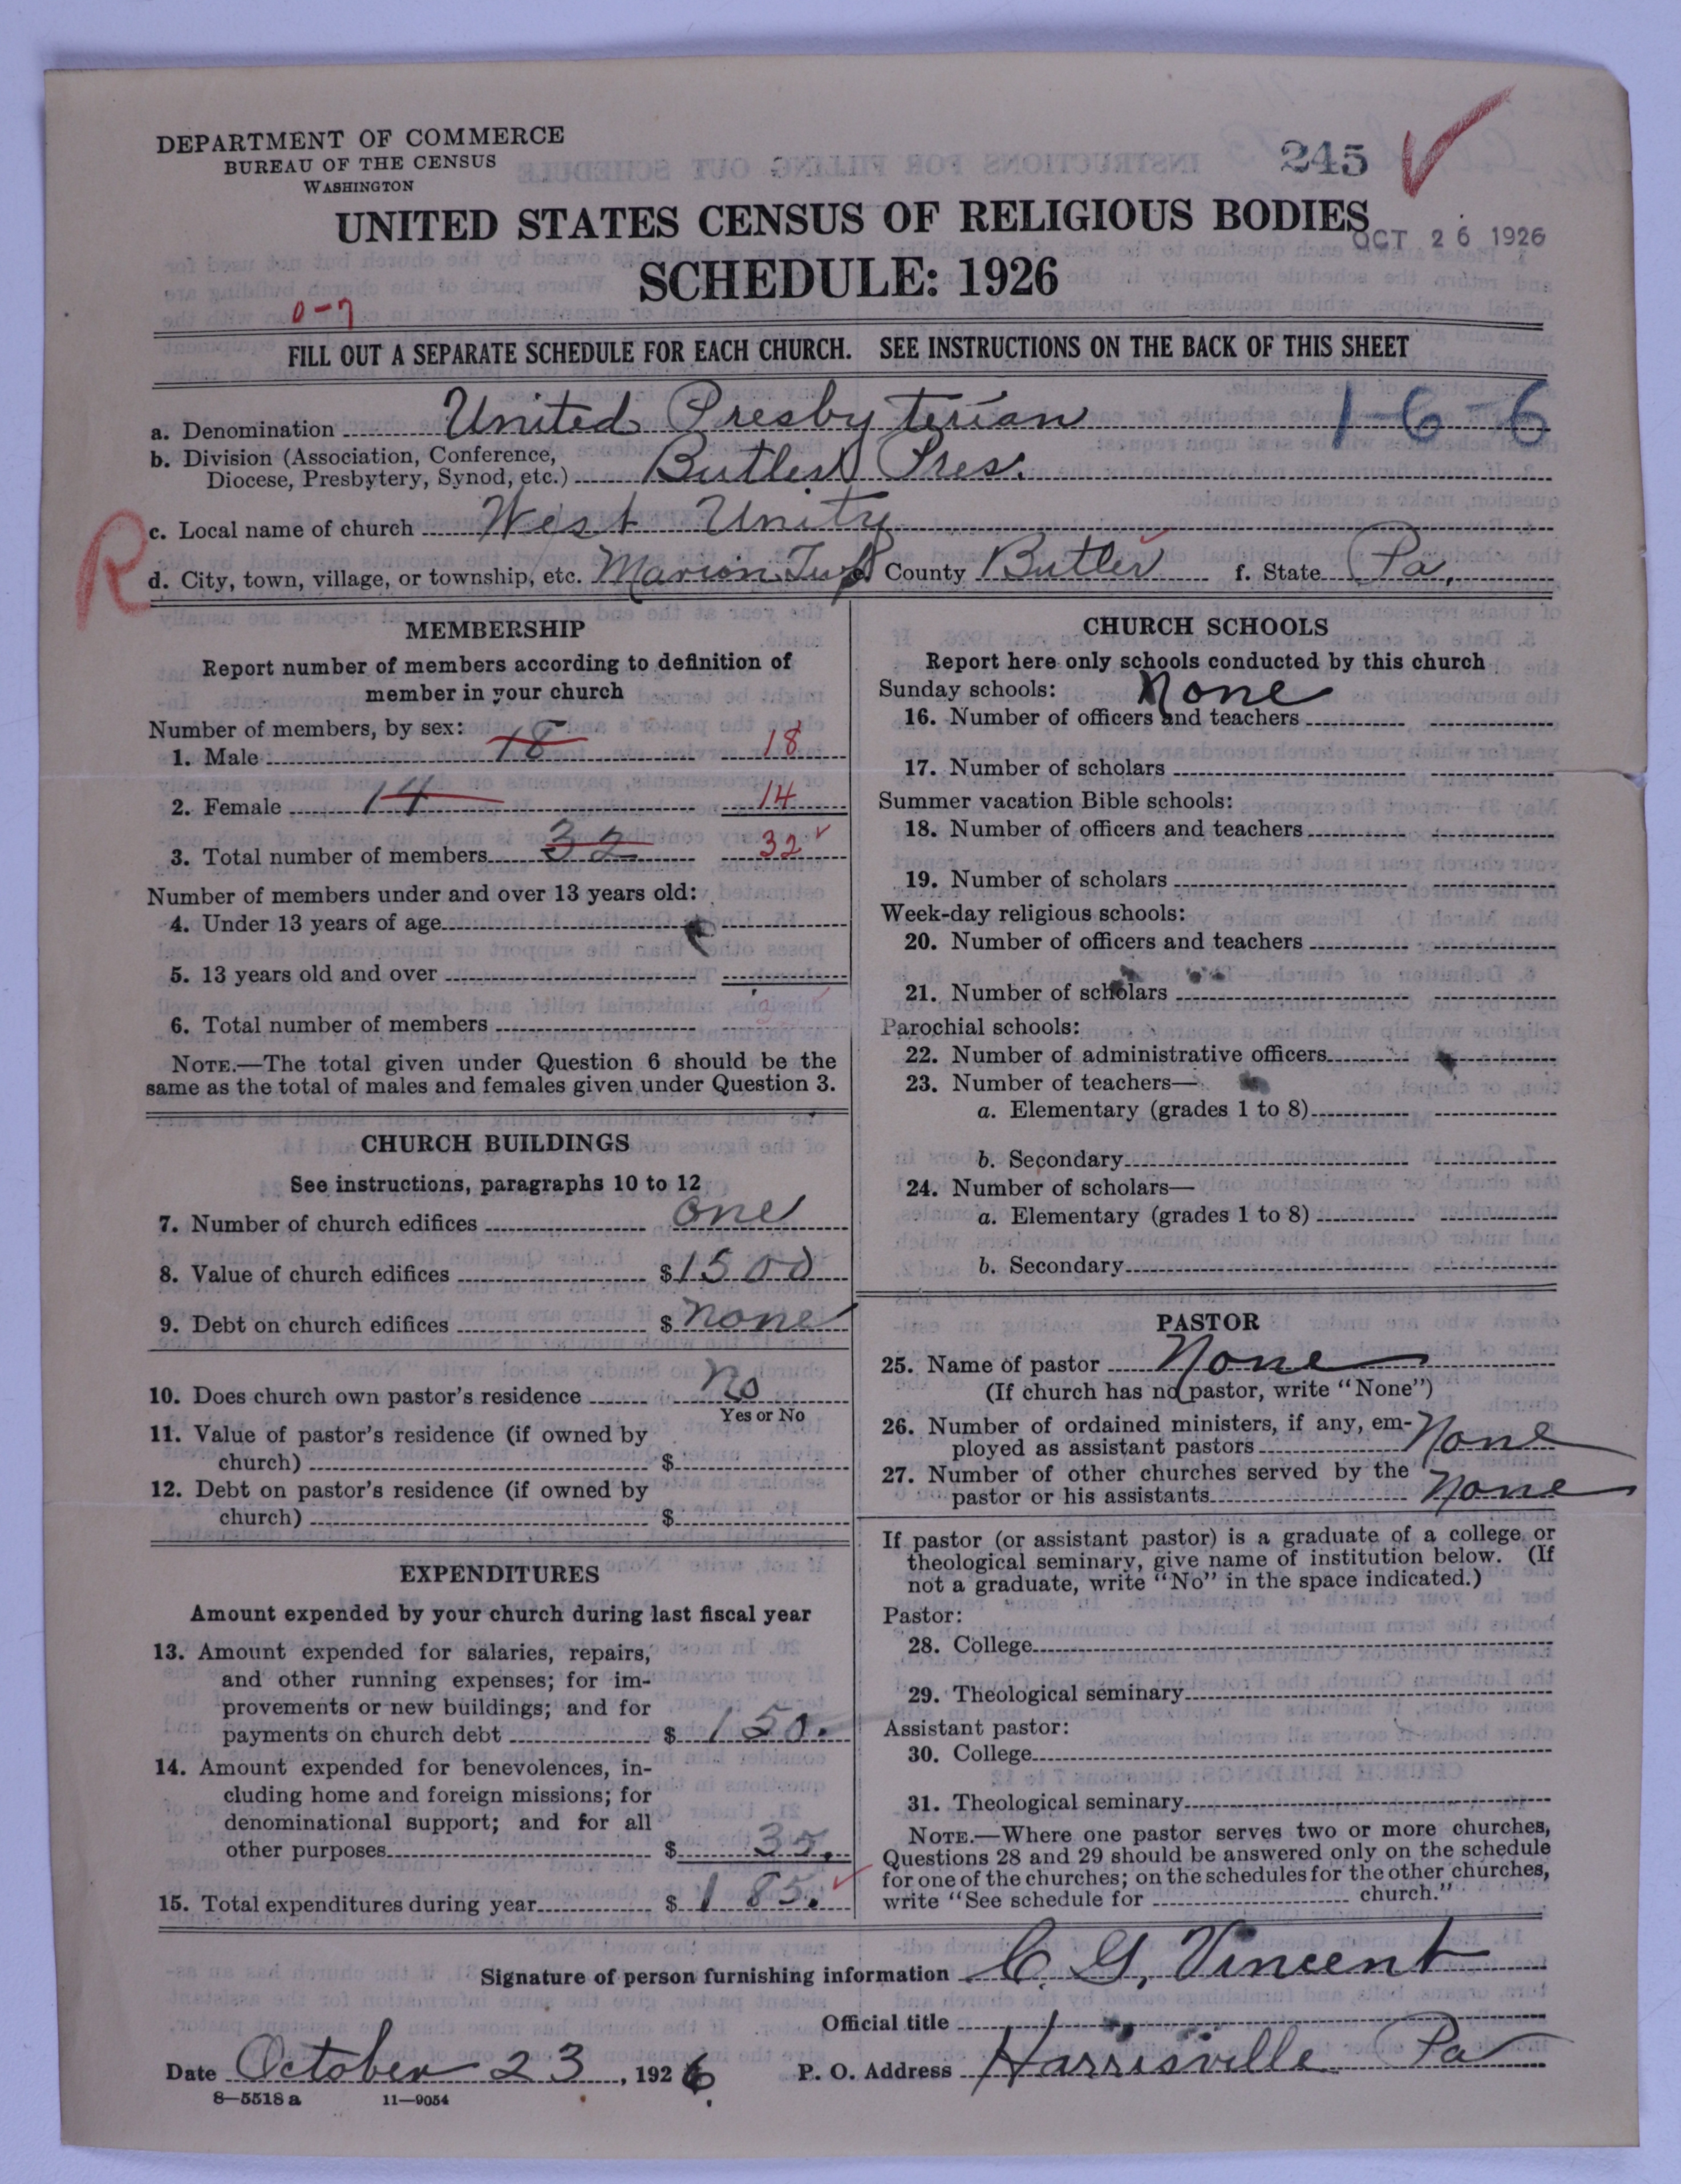 DEPARTMENT OF COMMERCE
BUREAU OF THE CENSUS
WASHINGTON
245
UNITED STATES CENSUS OF RELIGIOUS BODIES
OCT 26 1926
SCHEDULE: 1926
0-7
FILL OUT A SEPARATE SCHEDULE FOR EACH CHURCH. SEE INSTRUCTIONS ON THE BACK OF THIS SHEET
a. Denomination United Presbyterian 1-6-6
b. Division (Association, Conference,
Diocese, Presbytery, Synod, etc.) Butler Pres.
R
c. Local name of church West Unity
d. City, town, village, or township, etc. Marion Twp e. County Butler f. State Pa.
MEMBERSHIP
Report number of members according to definition of
member in your church
Number of members, by sex:
1. Male 18 18
2. Female 14 14
3. Total number of members 32 32
Number of members under and over 13 years old:
4. Under 13 years of age
5. 13 years old and over
6. Total number of members
NOTE.—The total given under Question 6 should be the
same as the total of males and females given under Question 3.
CHURCH BUILDINGS
See instructions, paragraphs 10 to 12
7. Number of church edifices one
8. Value of church edifices $1500
9. Debt on church edifices $ none
10. Does church own pastor's residence no
Yes or No
11. Value of pastor's residence (if owned by
church) $
12. Debt on pastor's residence (if owned by
church) $
EXPENDITURES
Amount expended by your church during last fiscal year
13. Amount expended for salaries, repairs,
and other running expenses; for im-
provements or new buildings; and for
payments on church debt $ 150.
14. Amount expended for benevolences, in-
cluding home and foreign missions; for
denominational support; and for all
other purposes $ 35.
15. Total expenditures during year $ 185.
CHURCH SCHOOLS
Report here only schools conducted by this church
Sunday schools: None
16. Number of officers and teachers
17. Number of scholars
Summer vacation Bible schools:
18. Number of officers and teachers
19. Number of scholars
Week-day religious schools:
20. Number of officers and teachers
21. Number of scholars
Parochial schools:
22. Number of administrative officers
23. Number of teachers—
a. Elementary (grades 1 to 8)
b. Secondary
24. Number of scholars—
a. Elementary (grades 1 to 8)
b. Secondary
PASTOR
25. Name of pastor None
(If church has no pastor, write "None")
26. Number of ordained ministers, if any, em-
ployed as assistant pastors None
27. Number of other churches served by the
pastor or his assistants None
If pastor (or assistant pastor) is a graduate of a college or
theological seminary, give name of institution below. (If
not a graduate, write "No" in the space indicated.)
Pastor:
28. College
29. Theological seminary
Assistant pastor:
30. College
31. Theological seminary
NOTE.—Where one pastor serves two or more churches,
Questions 28 and 29 should be answered only on the schedule
for one of the churches; on the schedules for the other churches,
write "See schedule for church."
Signature of person furnishing information C. G. Vincent
Official title
Date October 23, 1926 P. O. Address Harrisville Pa
8—5518 a 11—9054